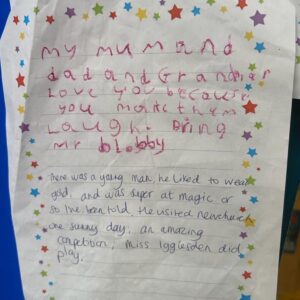 My mum and
dad and Grandma
Love you because
you make them
Laugh. Bring
mr blobby
There was a young man, he liked to wear
gold, and was super at magic, or
so I've been told. He visited newchurch
one sunny day, an amazing
competition, miss Igglesden did
play.